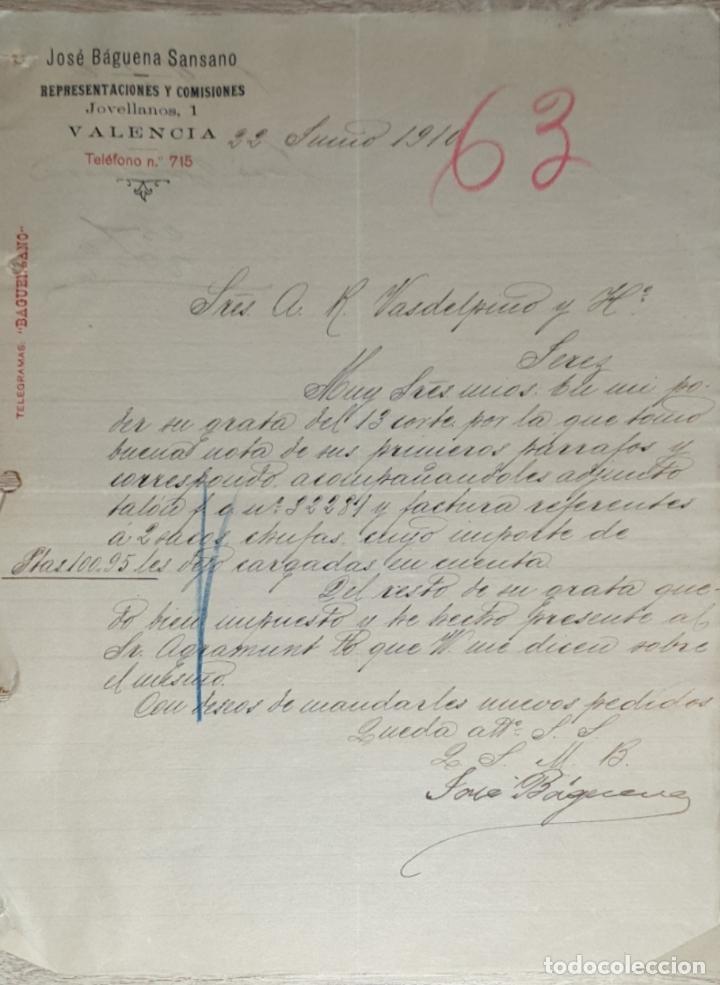 José Báguena Sansano
REPRESENTACIONES Y COMISIONES
Jovellanos, 1
VALENCIA
Teléfono n.º 715
22 Junio 1910
63
TELEGRAMAS: "BAGUENSANO"
Sres. A. R. Vasdelpino y Hº
Jerez
Muy Sres mios. En mi po-
der su grata del 13 corte. por la que tomo
buena nota de sus primeros parrafos y
correspondo acompañandoles adjunto
talón f. g. nº 32284 y factura referentes
á 2 sacos chufas cuyo importe de
Ptas 100.95 les dejo cargadas en cuenta
Del resto de su grata que-
do bien impuesto y he hecho presente al
Sr. Agramunt lo que V. me dicen sobre
el mismo.
Con deseos de mandarles nuevos pedidos
Queda attº. S. S.
Q. S. M. B.
José Báguena
todocoleccion.net